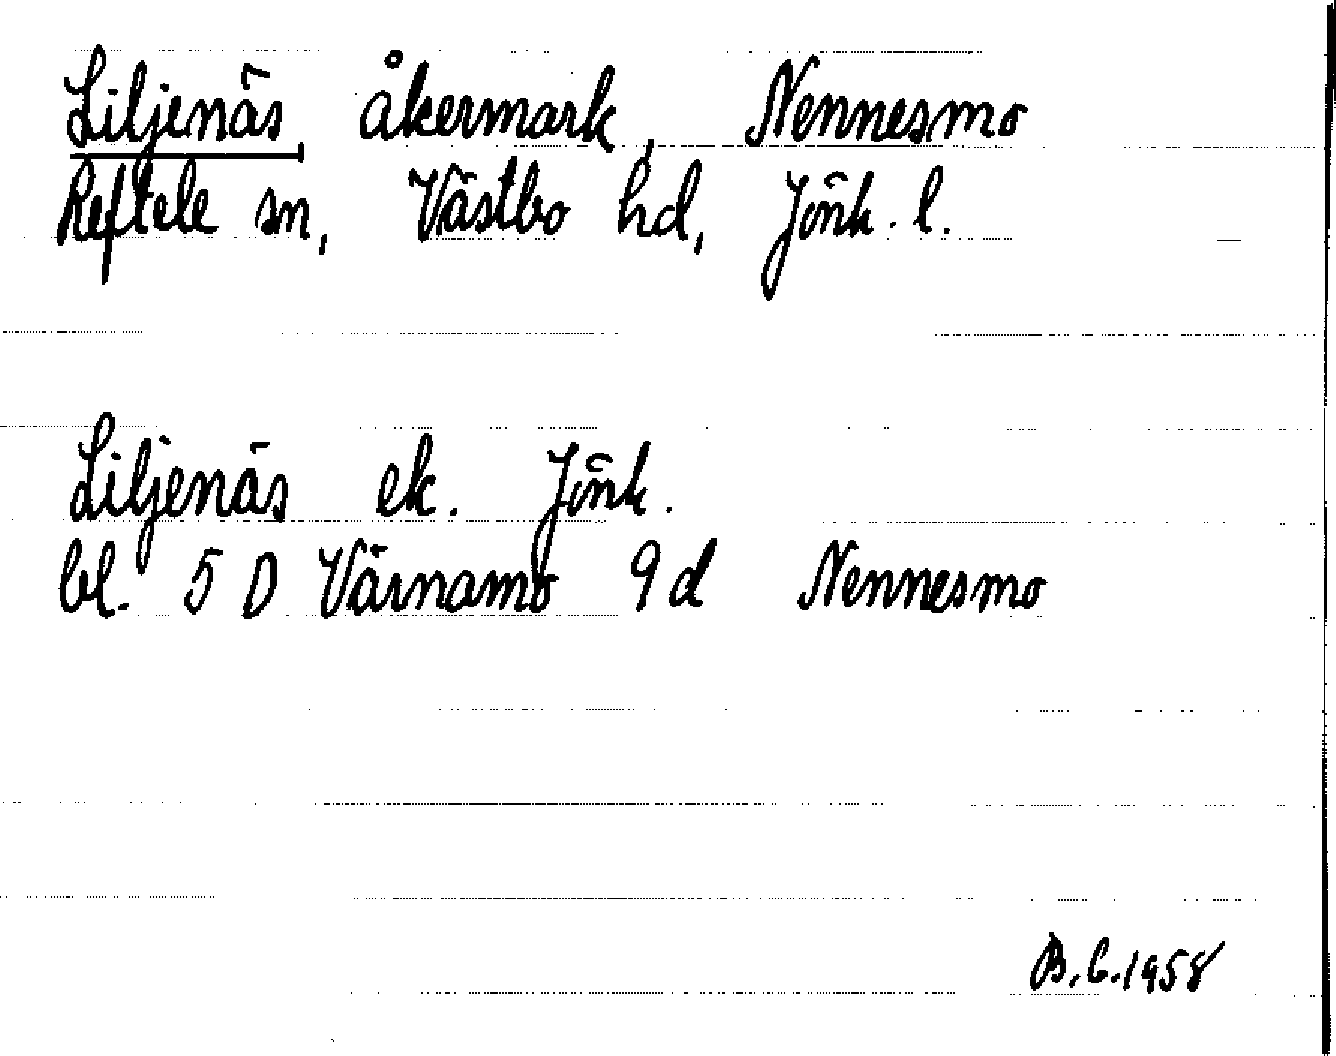 Liljenäs, åkermark, Nennesmo
Reftele sn, Västbo hd, Jönk. l.
Liljenäs ek. Jönk.
bl. 5 D Värnamo 9 d Nennesmo
B.G.1958